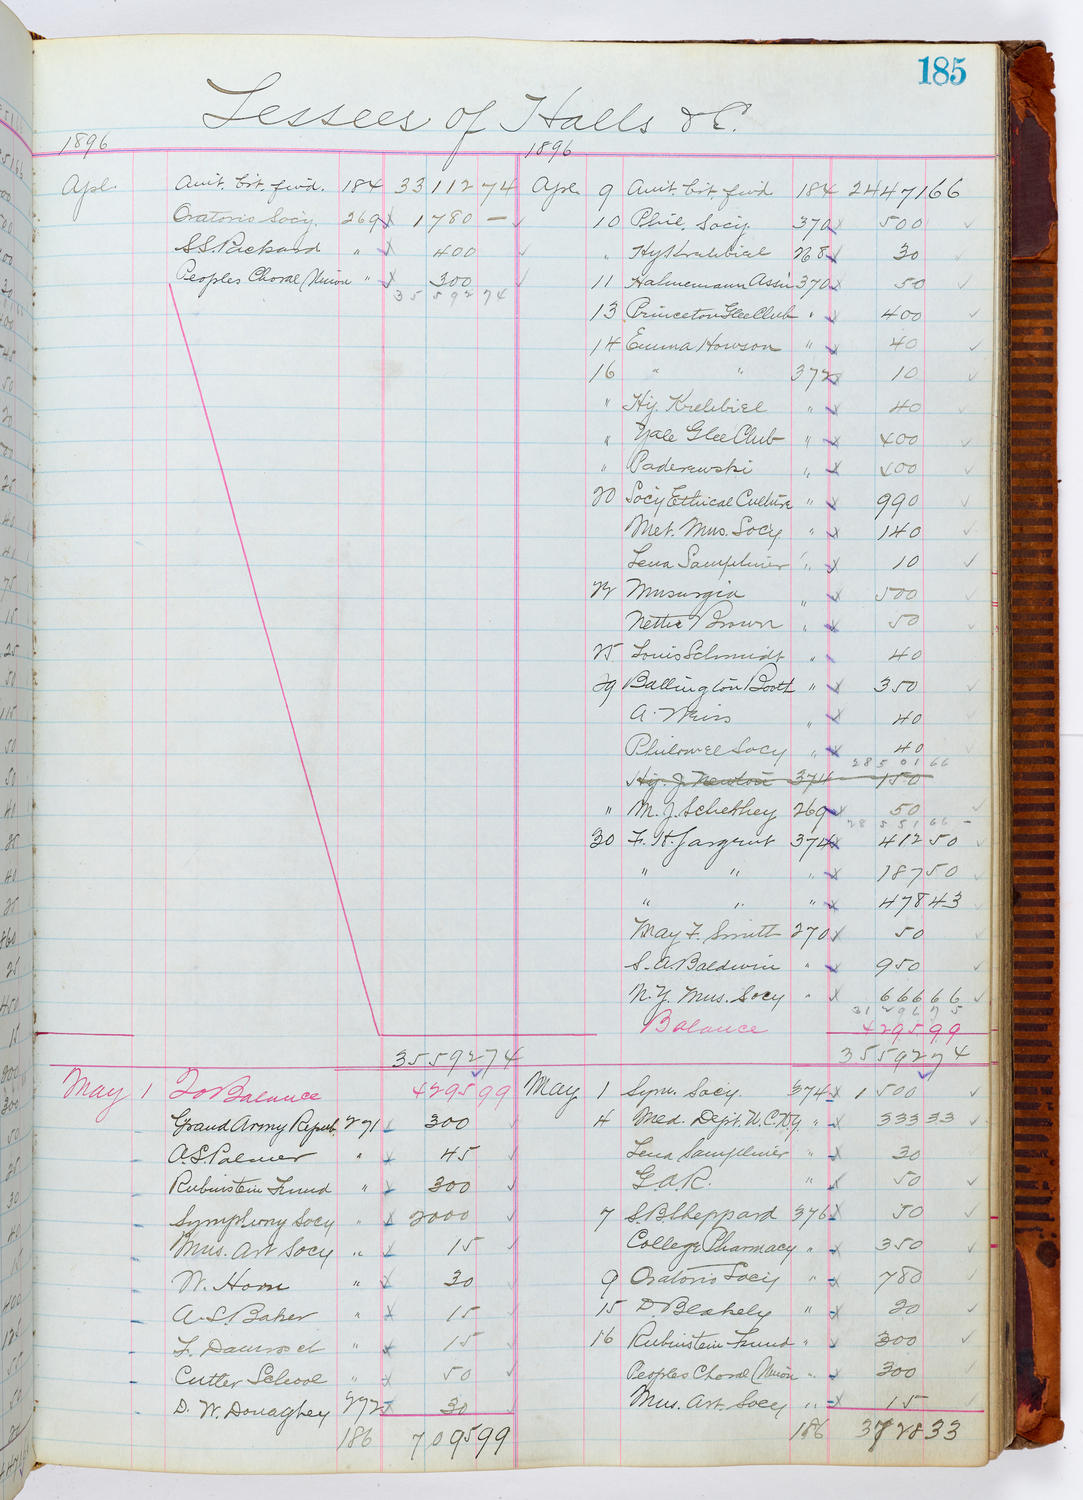 185
Lessees of Halls &C.
1896
Apl. Amt. brt. fwd. 184 33112 74
Oratorio Socy. 269 1780 —
S.S. Packard " 400
Peoples Choral Union " 300
35592 74
35592 74
May 1 To Balance 4295 99
Grand Army Repub. 271 300
A.S. Palmer " 45
Rubinstein Fund " 300
Symphony Socy " 2000
Mus. Art Socy " 15
W. Horn " 30
A.L. Baker " 15
F. Damrosch " 15
Cutter School " 50
D. W. Donaghey 272 30
186 7095 99
1896
Apl 9 Amt. brt. fwd 184 24471 66
10 Phil. Socy. 370 500
" Hy Krehbiel 268 30
11 Hahnemann Assn 370 50
13 Princeton Glee Club " 400
14 Emma Howson " 40
16 " " 372 10
" Hy. Krehbiel " 40
" Yale Glee Club " 400
" Paderewski " 400
20 Socy Ethical Culture " 990
Met. Mus. Socy " 140
Lena " 10
22 Musurgia " 500
Nettie Brown " 50
25 Louis Schmidt " 40
29 Ballington Booth " 350
A. Weiss " 40
Philomel Socy " 40
28501 66
Hy. J. Newton 374 150
" M. J. 269 50
28551 66 –
30 F. H. Sargent 374 412 50
" " " 187 50
" " " 478 43
May F. Smith 270 50
S. A. Baldwin " 950
N.Y. Mus. Socy " 666 66
31296 75
Balance 4295 99
35592 74
May 1 Sym. Socy. 374 1500
4 Med. Dept. U.C.N.Y. " 333 33
Lena " 30
G.A.R. " 50
7 S.B. Sheppard 376 50
College Pharmacy " 350
9 Oratorio Socy " 780
15 D Blakely " 20
16 Rubinstein Fund " 300
Peoples Choral Union " 300
Mus. Art. Socy " 15
186 3728 33